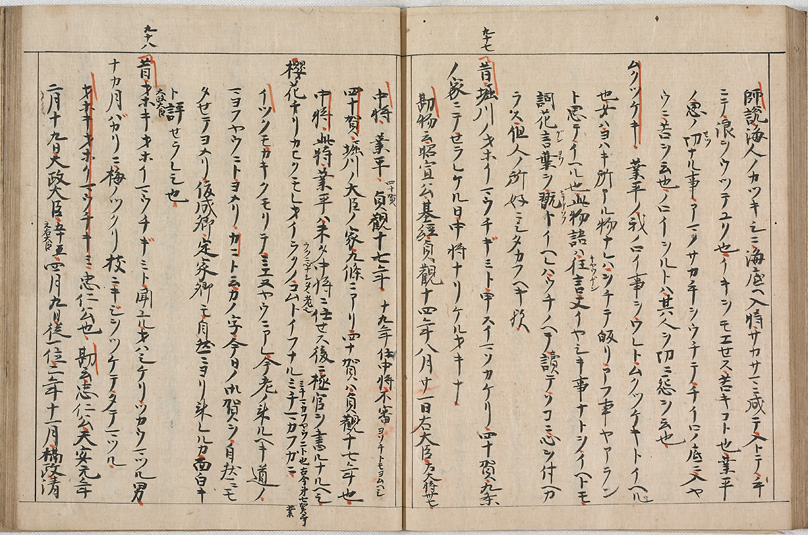 九十七
師説海人ノカツキシニ海底ヘ入時サカサマニ成テ入トテ手
ニテ浪ヲウツテユリ也イキヲモエセス苦キコト也業平
ノ思ノ切ナル事アマノサカテヲウチテチイロノ底ニ入ヤ
ウニ苦シ云也ノロイシルトハ其人ヲ切ニ怨シ云也
ムクツケキ 業平ノ我ノロイ事ヲウヒトムクツケキトイヘル
也
ト思テイヘル也此物語ハ狂言又イヤシキ事ナトヲイヘトモ
詞花言葉ヲ翫
ラス但人ノ所好ニシタカフヘキ歟
昔堀川ノオホイマウチギミト申スイマソカケリ 四十賀ハ九条
ノ家ニテセラレケル日中将ナリケルオキナ
勘物云昭宣公基経貞観十四年八月廿一日右大臣
中将 業平 貞観十七年 十九年任中将不審
四十賀 堀川ノ大臣ノ家九條ニアリ四十賀ハ貞観十七年也
中将 此時業平ハ未タ中将ニ任セス後ニ極官ヲ書ルナルヘシ
櫻花チリカヒクモレオイラクノコムトイフナルミチマカフガニ
イツノモカキクモリテミエヌヤウニアレ今老ノ来ルヘキ道ノ
マヨフヤウニトヨメリ ガニト云カノ字今日ノ御賀ヲ自然ニモ
タセテヨメリ 俊成卿定家卿モ自然ニヨリ来レルカ面白キ
ト評セラレシ也
九十八
昔オホキオホイマウチギミト聞エルオハシケリツカウマツル男
ナカ月バカリニ梅ノツクリ枝ニキジヲツケテタテマツル
オホキオホイマウチギミ 忠仁公也 勘云忠仁公天安元年
二月十九日太政大臣 四月九日従一位二年十一月摂政清